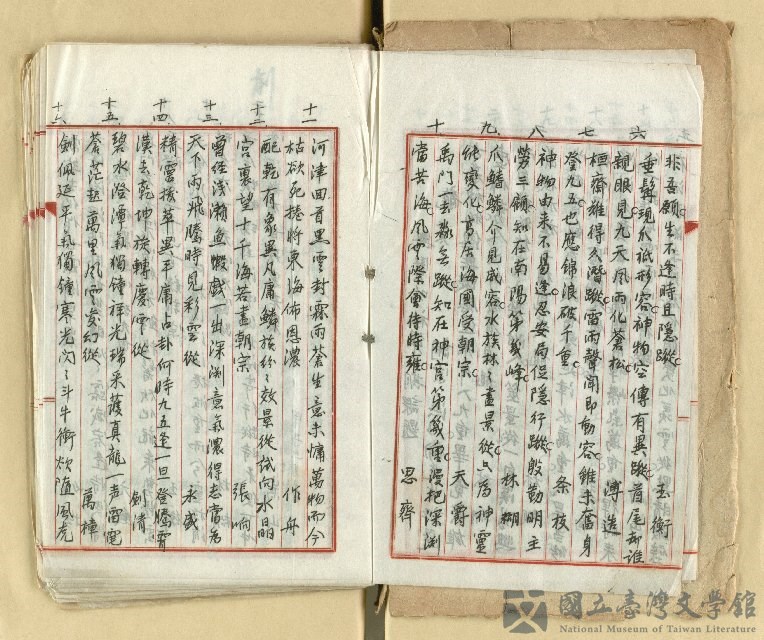 六
非吾願生不逢時且隱蹤 玉衡
垂髯現爪祇形容神物空傳有異蹤首尾却誰
親眼見九天風雨化蒼松 溥造
七
桓齋難得久潛蹤雷雨聲聞即動容雖未奮身
登九五也應錦浪破千重 條枝
八
神物由來不易逢忍安局促隱行蹤殷勤明主
勞三顧知在南陽第幾峰 林糊
九
爪鱔鱗介見威容水族林々盡景從只為神靈
能變化高居海國受朝宗 天爵
十
禹門一去渺無蹤知在神宮第幾重漫把深淵
當苦海風雲際會待時雍 思齊
十一
河津回首黑雲封霖雨蒼生意未慵萬物而今
枯欲死捲將東海佈恩濃 作舟
十二
配乾有象異凡庸鱗族紛々效景從試向水晶
宮裏望十千海若盡朝宗 張响
十三
曾經淺瀨魚蝦戲一出深淵意氣濃得志當為
天下雨飛騰時見彩雲從 永盛
十四
精靈援萃異平庸占卦何時九五逢一旦登騰霄
漢去乾坤旋轉慶雲從 劍清
十五
碧水澄潭氣獨鍾祥光瑞采護真龍一声雷電
蒼茫起萬里風雲変幻從 萬樟
十六
劍佩延平氣獨鍾寒光閃々斗牛衝欲隨風虎
國立臺灣文學館
National Museum of Taiwan Literature